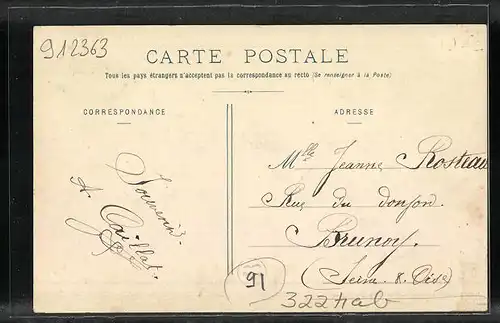 912363
CARTE POSTALE
Tous les pays étrangers n'acceptent pas la correspondance au recto (Se renseigner à la Poste)
CORRESPONDANCE
ADRESSE
Souvenirs.
A. Caillat
Mlle Jeanne Rosteau
Rue du donjon
Brunoy.
(Seine & Oise)
91
322 ab